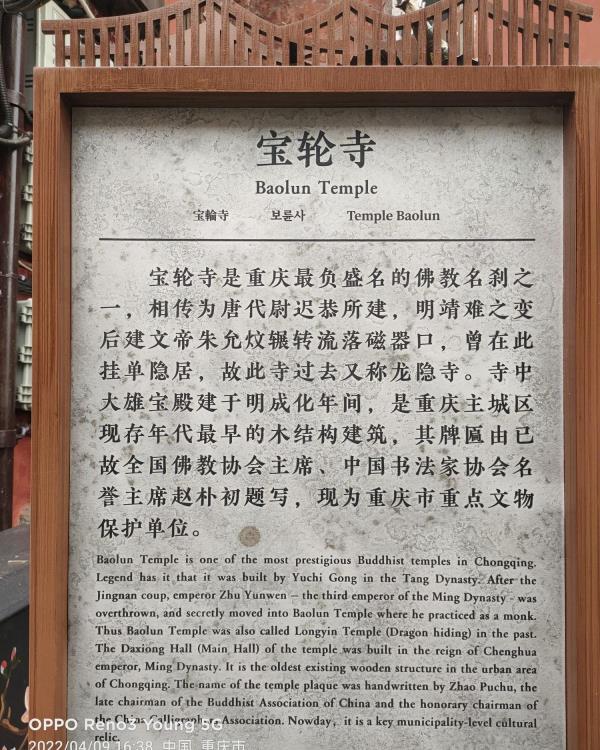 宝轮寺
Baolun Temple
宝輪寺 보륜사 Temple Baolun
宝轮寺是重庆最负盛名的佛教名刹之
一，相传为唐代尉迟恭所建，明靖难之变
后建文帝朱允炆辗转流落磁器口，曾在此
挂单隐居，故此寺过去又称龙隐寺。寺中
大雄宝殿建于明成化年间，是重庆主城区
现存年代最早的木结构建筑，其牌匾由已
故全国佛教协会主席、中国书法家协会名
誉主席赵朴初题写，现为重庆市重点文物
保护单位。
Baolun Temple is one of the most prestigious Buddhist temples in Chongqing.
Legend has it that it was built by Yuchi Gong in the Tang Dynasty. After the
Jingnan coup, emperor Zhu Yunwen – the third emperor of the Ming Dynasty - was
overthrown, and secretly moved into Baolun Temple where he practiced as a monk.
Thus Baolun Temple was also called Longyin Temple (Dragon hiding) in the past.
The Daxiong Hall (Main Hall) of the temple was built in the reign of Chenghua
emperor, Ming Dynasty. It is the oldest existing wooden structure in the urban area
of Chongqing. The name of the temple plaque was handwritten by Zhao Puchu, the
late chairman of the Buddhist Association of China and the honorary chairman of
the China Calligraphers Association. Nowday, it is a key municipality-level cultural
relic.
OPPO Reno3 Young 5G
2022/04/09 16:38 中国 重庆市